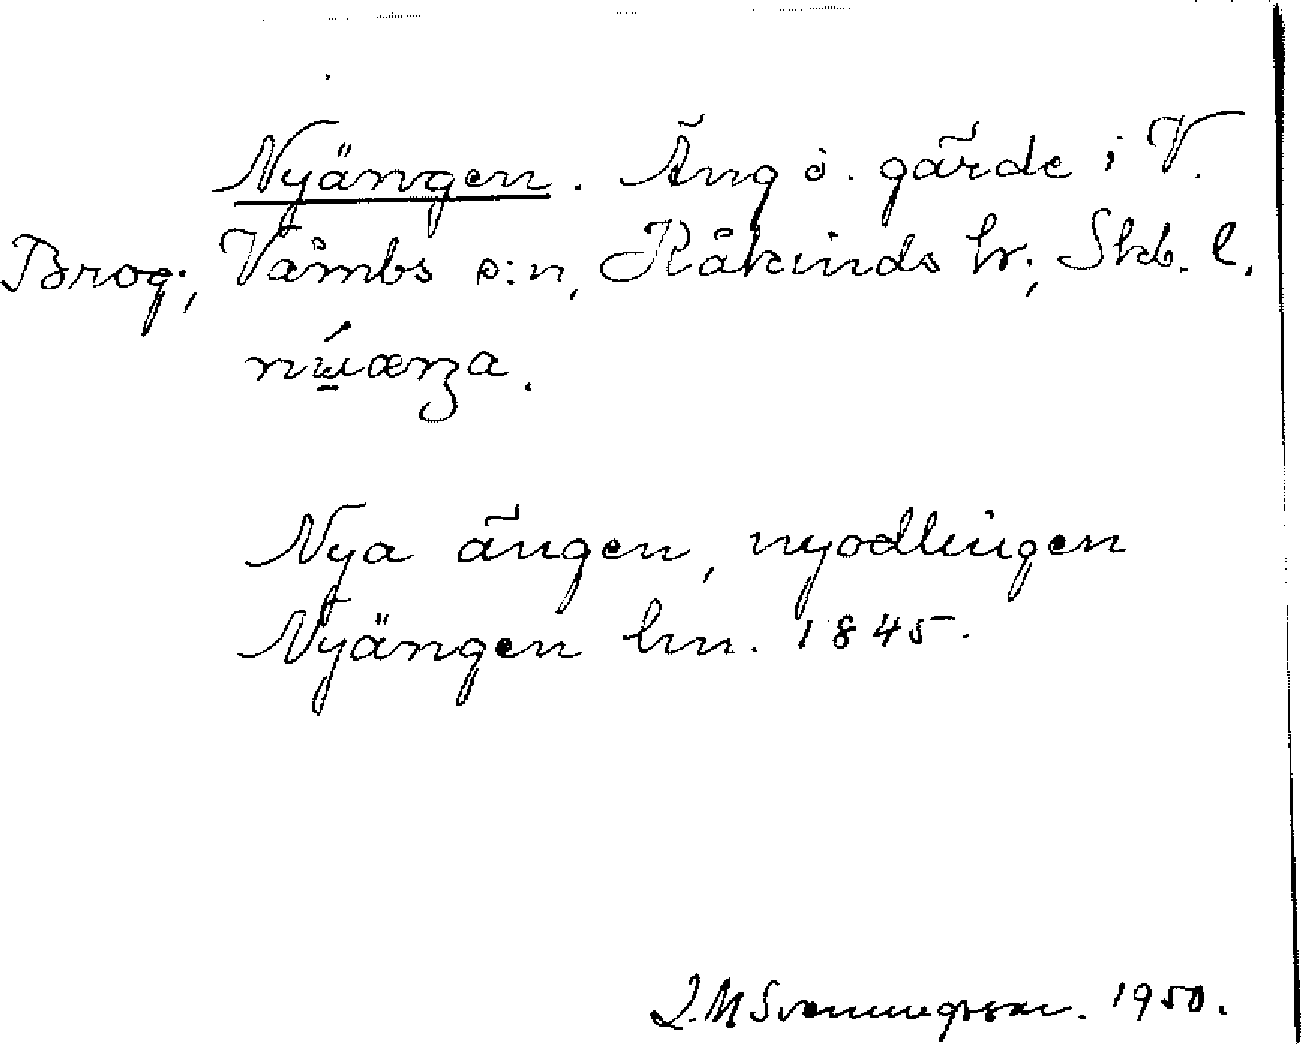 Nyängen. Äng o. gärde i V.
Brog, Våmbs s:n, Kåkinds hr, Skb. l.
Nya ängen, nyodlingen
Nyängen hm. 1845.
L.M Svenungsson. 1950.